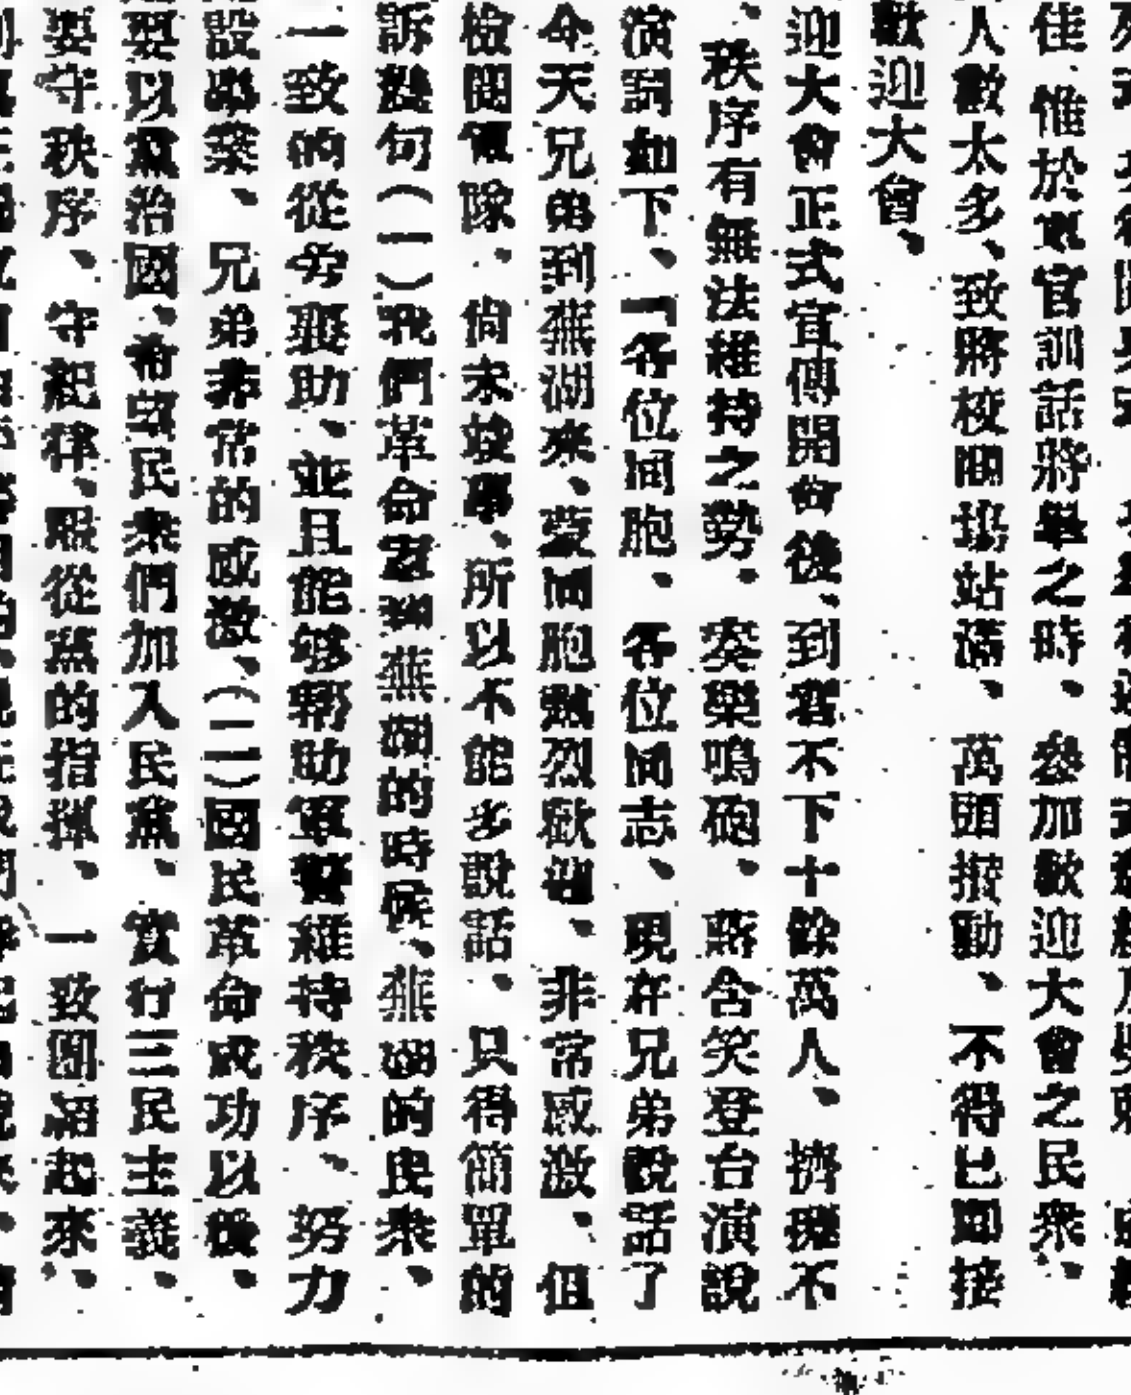 佳、惟於軍官訓話將畢之時、參加歡迎大會之民衆、
人數太多、致將校門塲站滿、萬頭攢動、不得已卽接
歡迎大會、
迎大會正式宣傳開會後、到者不下十餘萬人、擠擁不
、秩序有無法維持之勢、奏樂鳴砲、蔣含笑登台演說
演詞如下、「各位同胞、各位同志、現在兄弟說話了
今天兄弟到蕪湖來、蒙同胞熱烈歡迎、非常感激、但
檢閱軍隊、尙未竣事、所以不能多說話、只得簡單的
訴幾句(一)我們革命軍到蕪湖的時候、蕪湖的民衆、
一致的從旁襄助、並且能够幫助軍警維持秩序、努力
設事業、兄弟非常的感激、(二)國民革命成功以後、
要以黨治國、希望民衆們加入民黨、實行三民主義、
要守秩序、守紀律、服從黨的指揮、一致團結起來、